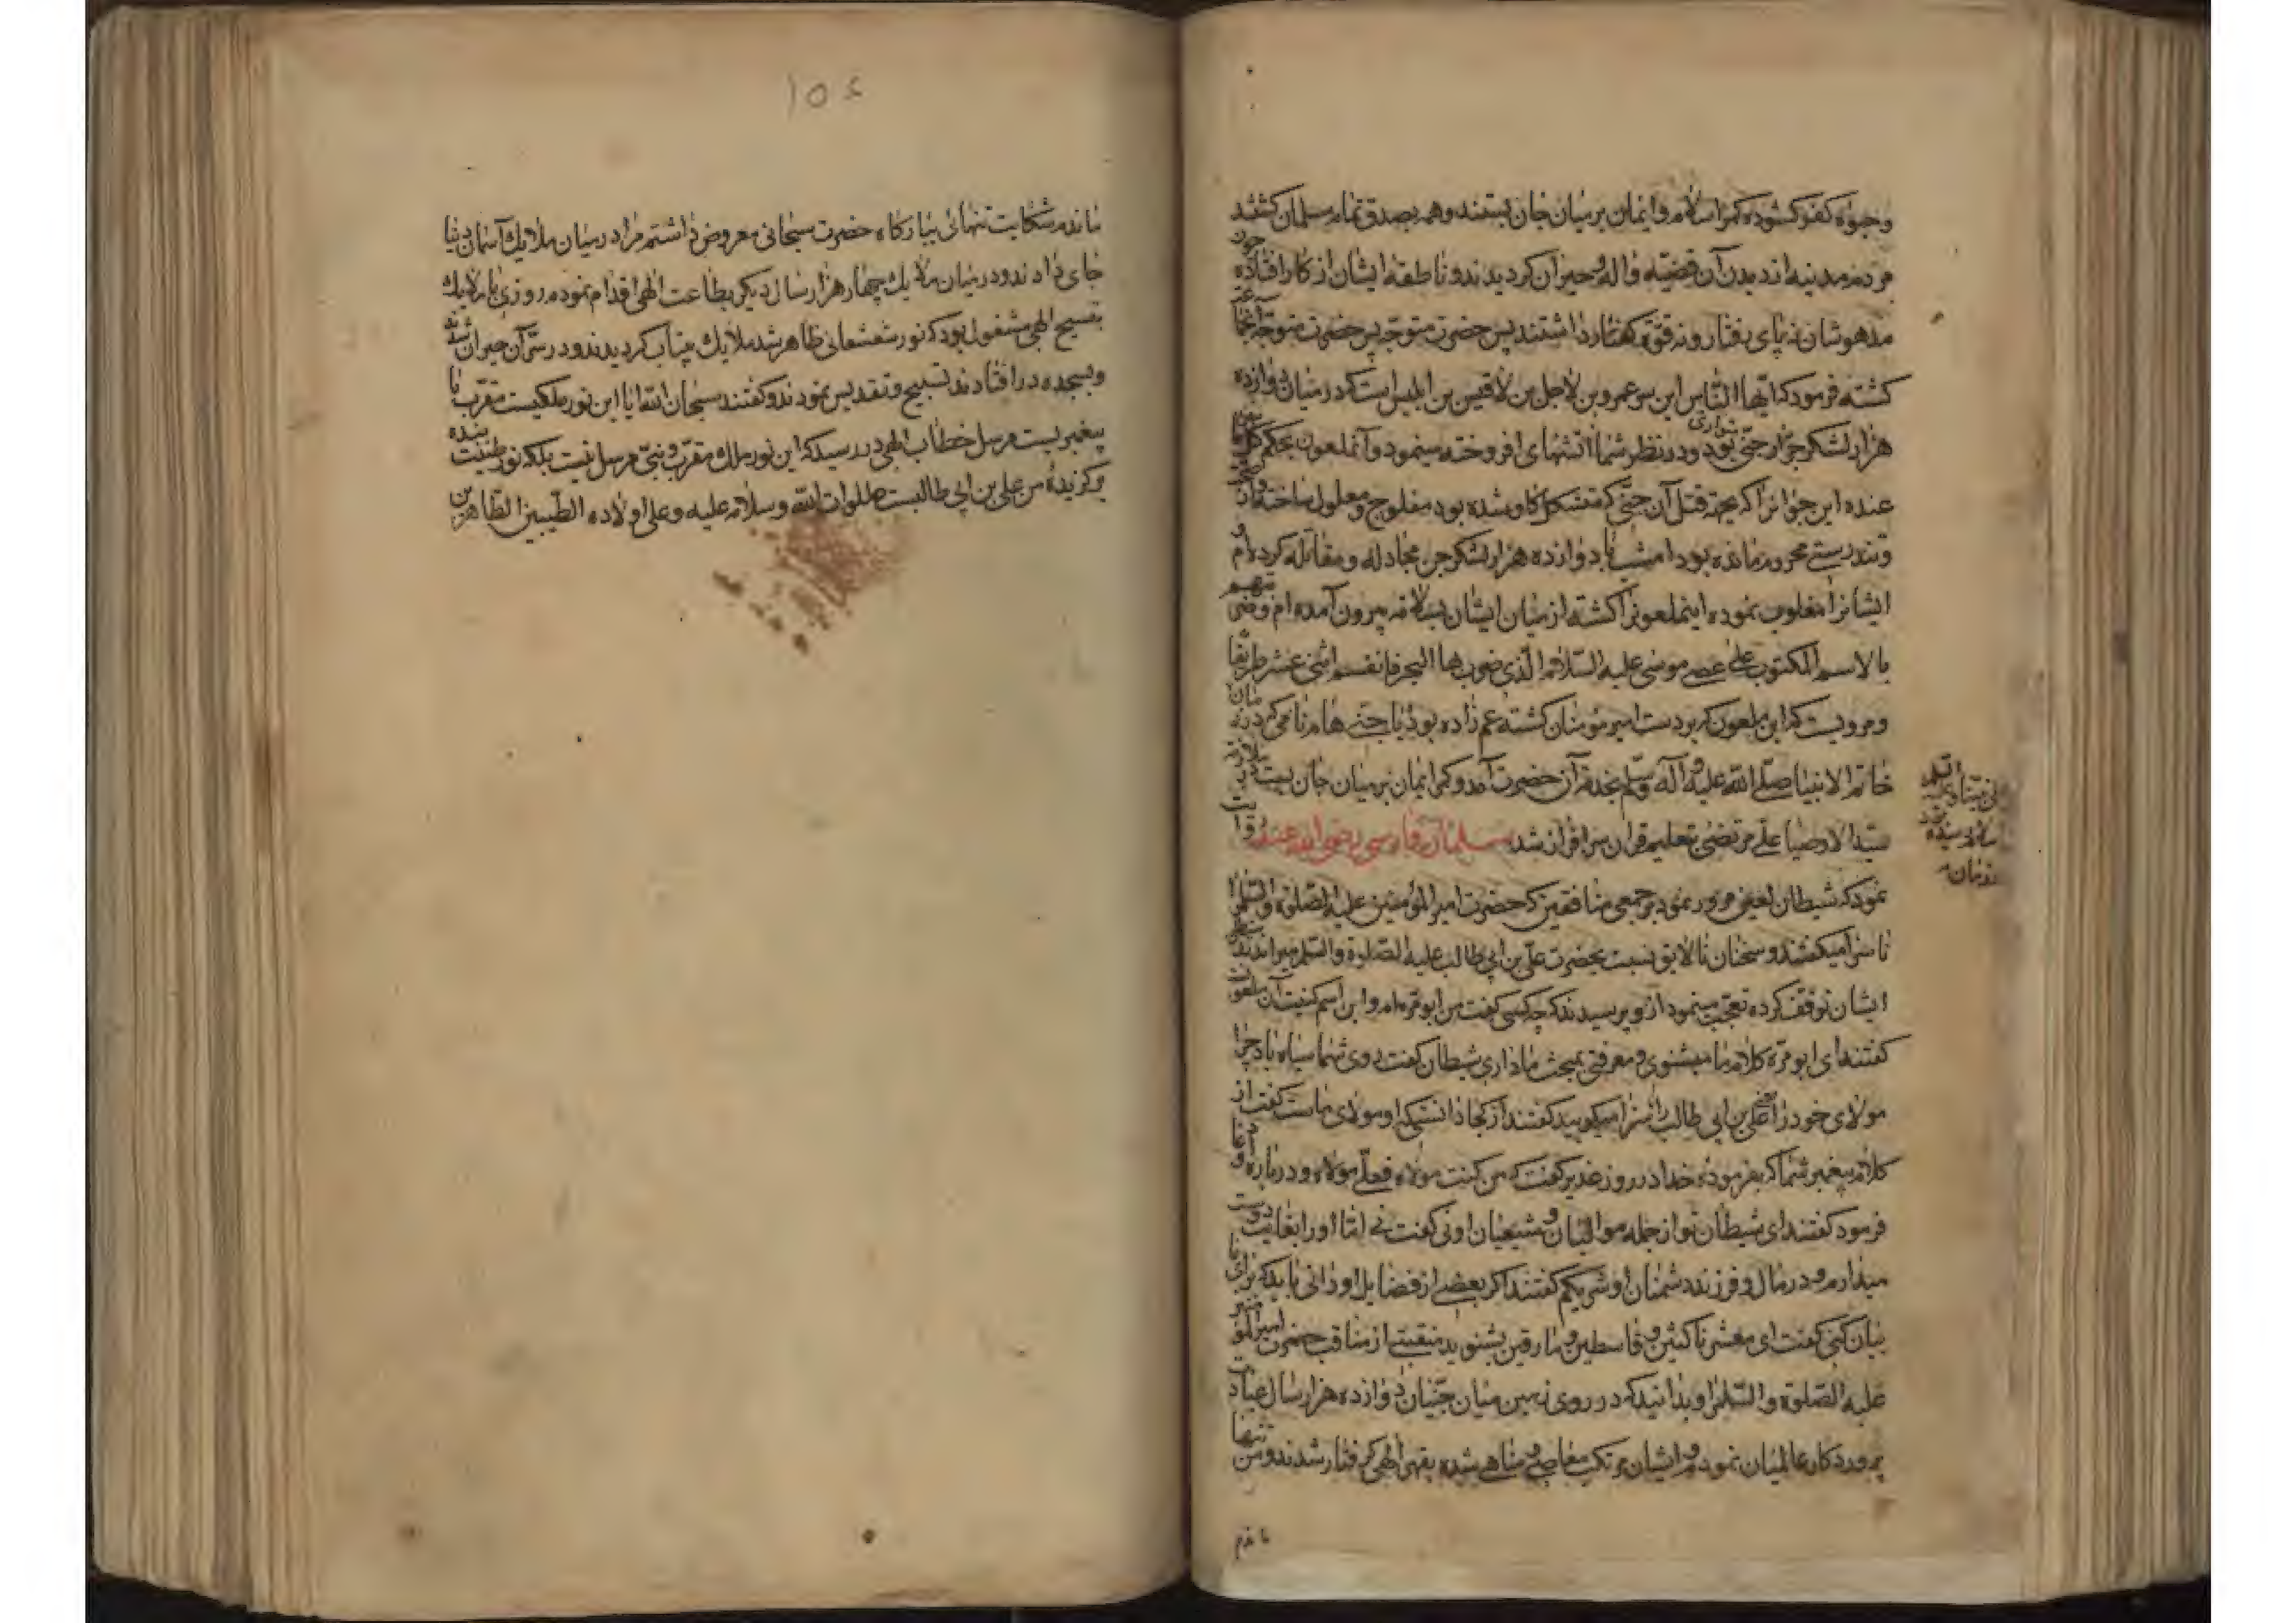 وجوه کفر کشوده کمر اسلام و ایمان بر میان جان بستند و همه بصدق تمام مسلمان کشتند چون
مردم مدینه از دیدن آن قضیه واله و حیران کردیدند و ناطقه ایشان از کار افتاده
مدهوشان نه پای رفتار و نه قوّة کفتار داشتند پس حضرت متوجه پس حضرت متوجه
کشته فرمود که ایّها النّاس این سر عمرو بن لاجل بن لاقیس بن ابلیس است که در میان دوازده
هزار لشکر جرّار جنّی بود و در نظر شما آتشهای افروخته مینمود و آنملعون بحکم
عنده این جوانرا که بجهة قتل آن جنّی که متشکل کاو شده بود مفلوج و معلول ساخته از
و تندرستی محروم مانده بود امشب با دوازده هزار لشکر جن مجادله و مقاتله کرده‌ام و
ایشانرا مغلوب نموده اینملعونرا کشته از میان ایشان بسلامه بیرون آمده‌ام
بالاسم المکتوب علی عصی موسی علیه السّلام الّذی ضرب بها البحر فانقسم اثنی عشر طریقا
و مرویست که این ملعون که بردست امیر مؤمنان کشته عم زاده بود با جنّی هام نامی که در زمان
خاتم الانبیا صلّی الله علیه و آله و سلّم بخدمة آن حضرت آمد و کمر ایمان بر میان جان بست
سیّد الاوصیا علی مرتضی بتعلیم قران سرافراز شد سلمان فارسی رضی الله عنه روایت
نمود که شیطان لعین مرور نمود بر جمعی منافقین که حضرت امیر المؤمنین علیه الصّلوة و السّلم را
ناسزا میکفتند و سخنان نالایق نسبت بحضرت علی بن ابی طالب علیه الصّلوة و السّلم میراندند
ایشان توقف کرده تعجّب مینمود از و پرسیدند که چه کسی کفت من ابو مرّه‌ام و این اسم کنیت آن ملعونست
کفتند ای ابو مرّه کلام ما میشنوی و معرفتی بمبحث ما داری شیطان کفت روی شما سیاه باد چرا
مولای خود را علی بن ابی طالب را ناسزا میکویید کفتند از کجا دانستی که او مولای ماست کفت از
کلام پیغمبر شما که بفرموده خدا در روز غدیر کفت که من کنت مولاه فعلی مولاه و درباره او
فرمود کفتند ای شیطان تو از جمله موالیان و شیعیان اونی کفت نی امّا او را بغایت دوست
میدارم و در مال و فرزند دشمنان او شریکم کفتند اکر بعضی از فضایل او دانی باید که برای ما
بیان کنی کفت ای معشر ناکثین و قاسطین و مارقین بشنوید منقبتی از مناقب حضرت امیر المؤمنین
علیه الصّلوة و السّلم را و بدانید که در روی زمین میان جنّیان دوازده هزار سال عبادت
پروردکار عالمیان نمودم و ایشان مرتکب معاصی و مناهی شده بقهر الهی کرفتار شدند و من تنها
ماندم
۱۵۶
ماندم شکایت تنهائی ببارکاه حضرت سبحانی معروض داشتم مرا در میان ملایک آسمان دنیا
جای دادند و در میان ملایک چهار هزار سال دیکر بطاعت الهی اقدام نموده روزی با ملایک
بتسبیح الهی مشغول بود که نور شعشعانی ظاهر شد ملایک بیتاب کردیدند و در سرّ آن حیران شدند
و بسجده در افتادند تسبیح و تقدیس نمودند و کفتند سبحان الله ایا این نور ملکیست مقرّب یا
پیغمبریست مرسل خطاب الهی در رسید که این نور ملک مقرّب و نبیّ مرسل نیست بلکه نور طینت بنده
برکزیده من علی بن ابی طالبست صلوات الله و سلامه علیه و علی اولاده الطّیبین الطّاهرین